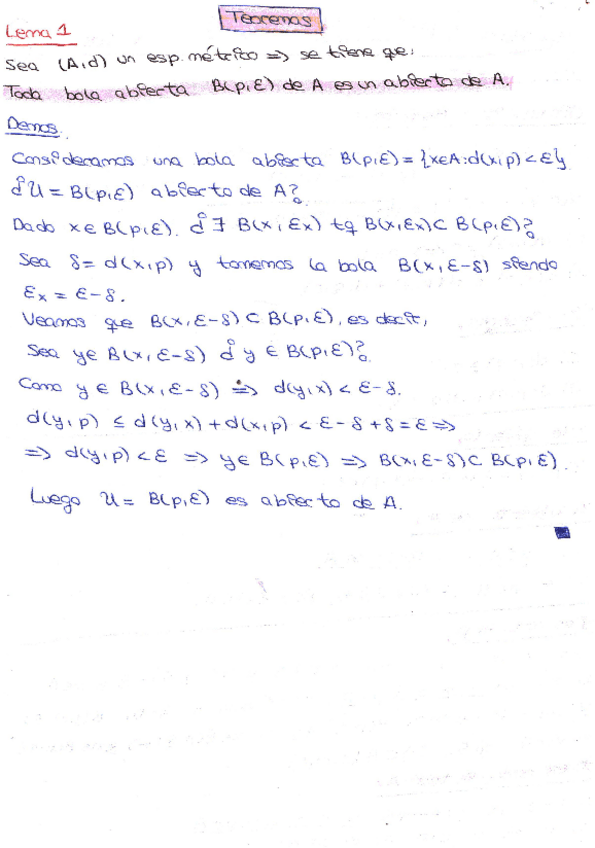 Teoremas
Lema 1
Sea (A,d) un esp. métrico => se tiene que:
Toda bola abierta B(p,ε) de A es un abierto de A.
Demos.
Consideramos una bola abierta B(p,ε) = {x∈A: d(x,p) < ε}
¿U = B(p,ε) abierto de A?
Dado x ∈ B(p,ε). ¿∃ B(x,εx) tq B(x,εx) ⊂ B(p,ε)?
Sea δ = d(x,p) y tomemos la bola B(x, ε-δ) siendo
εx = ε-δ.
Veamos que B(x, ε-δ) ⊂ B(p,ε), es decir,
Sea y ∈ B(x, ε-δ) ¿y ∈ B(p,ε)?
Como y ∈ B(x, ε-δ) => d(y,x) < ε-δ.
d(y,p) ≤ d(y,x) + d(x,p) < ε-δ+δ = ε =>
=> d(y,p) < ε => y ∈ B(p,ε) => B(x, ε-δ) ⊂ B(p,ε).
Luego U = B(p,ε) es abierto de A.